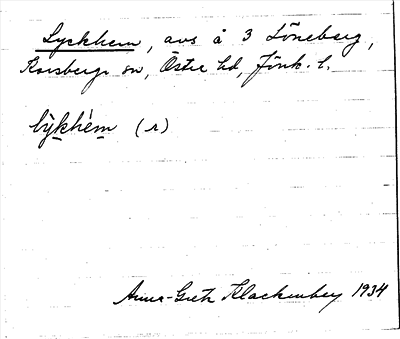 Lyckhem, avs å 3 Löneberg,
Korsberga sn, Östra hd, Jönk. l.
lỳkhèm (r)
Anna-Greta Klackenberg 1934